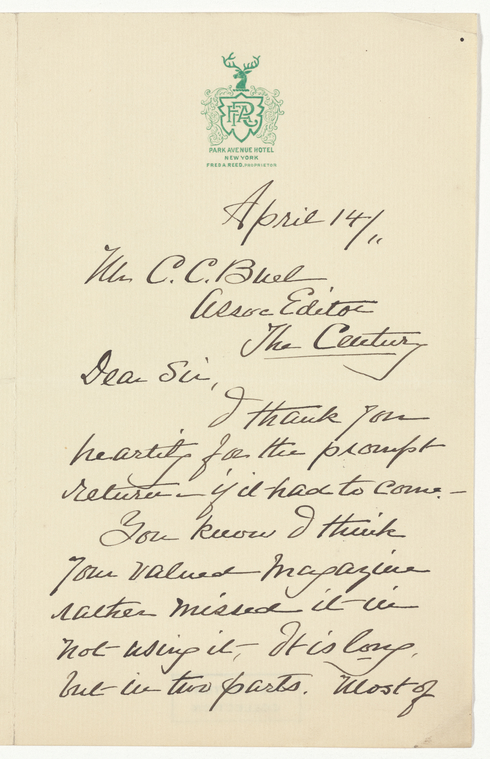 FAR
PARK AVENUE HOTEL
NEW YORK
FRED A. REED, PROPRIETOR
April 14/11
Mr C. C. Buel
Assoc Editor
The Century
Dear Sir,
I thank you
heartily for the prompt
return – if it had to come –
You know I think
your valued magazine
rather missed it in
not using it, It is long,
but in two parts. Most of